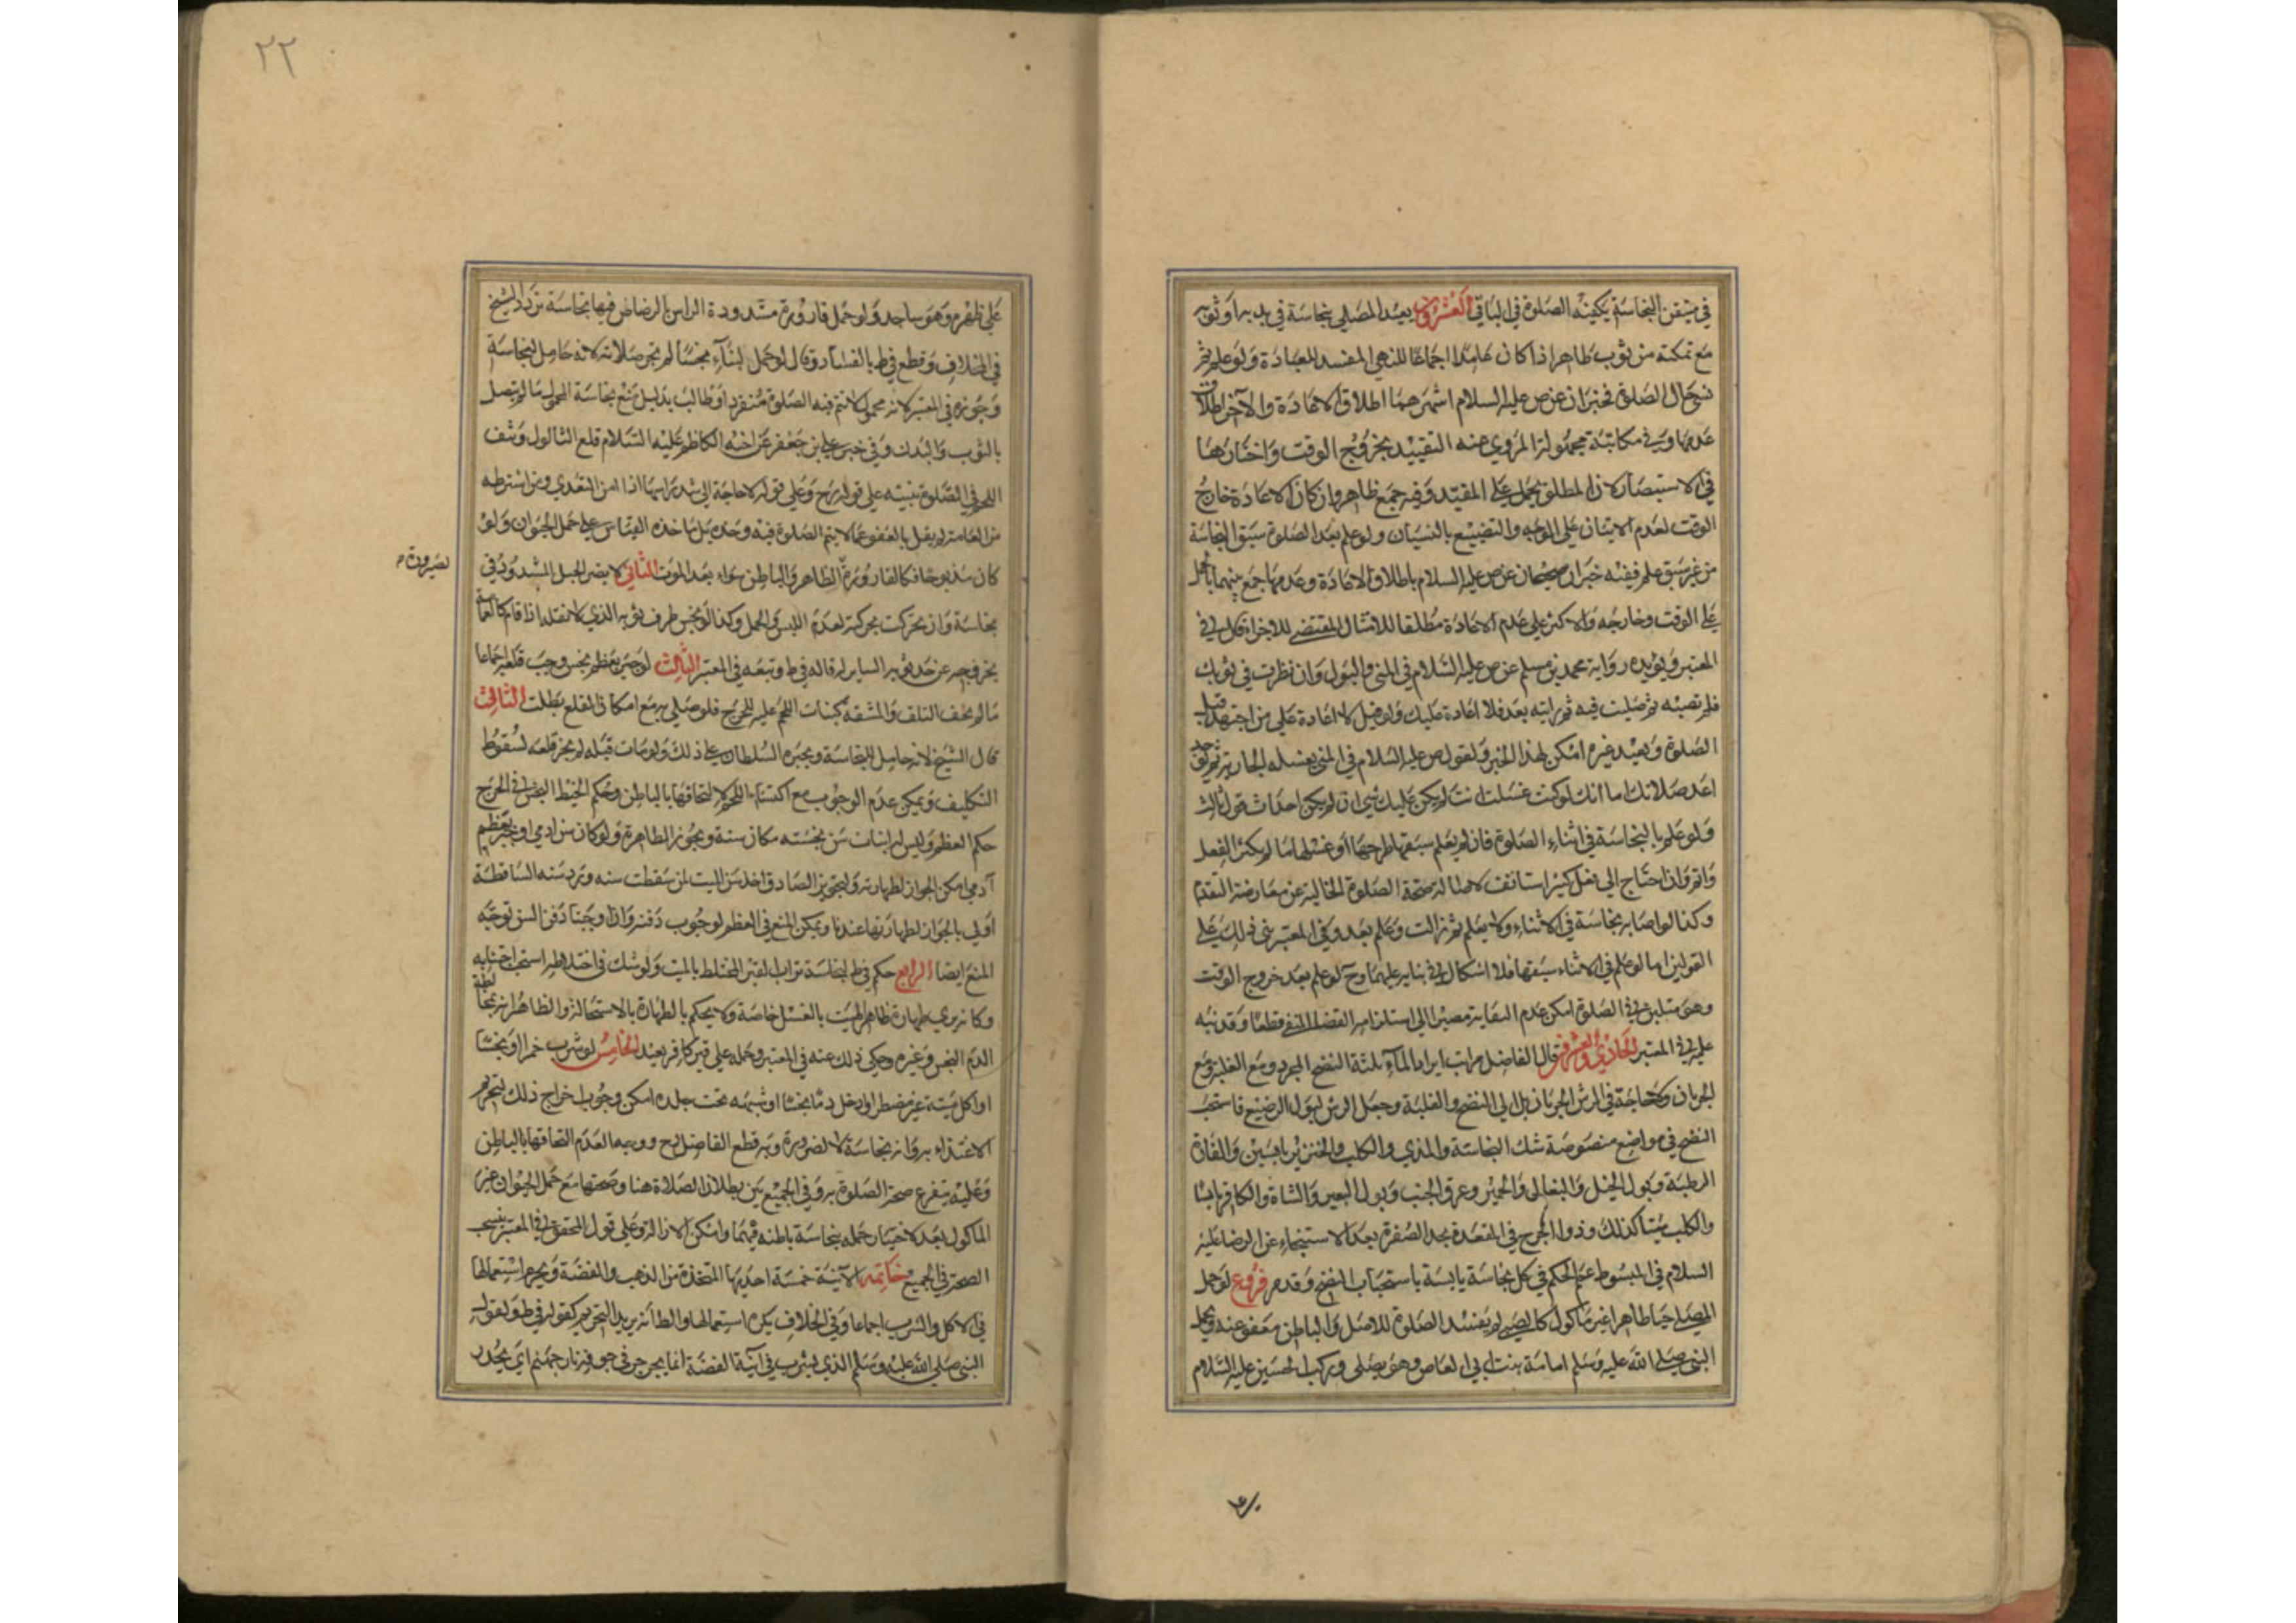 في متيقن النجاسة يكفيه الصلوة في الباقي العشرون يعيد المصلي بنجاسة في بدنه اوثوبه
مع تمكنه من ثوب طاهر اذا كان عامدا اجماعا للنهي المفسد للعبادة ولو علم ثم
نسي حال الصلوة فخبران عن ص عليه السلام اشهرهما اطلاق الاعادة والآخر اطلاق
عدمها وفي مكاتبة مجهولة المروي عنه التقييد بخروج الوقت واختارها
في الاستبصار لان المطلق يحمل على المقيد وفيه جمع ظاهر وان كان الاعادة خارج
الوقت لعدم الاتيان على الوجه والتضييع بالنسيان ولو علم بعد الصلوة سبق النجاسة
من غير سبق علم ففيه خبران صحيحان عن ص عليه السلام باطلاق الاعادة وعدمها جمع بينهما بالحمل
على الوقت وخارجه والاكثر على عدم الاعادة مطلقا للامتثال المقتضي للاجزاء قال في
المعتبر ويؤيده رواية محمد بن مسلم عن ص عليه السلام في المني والبول وان نظرت في ثوبك
فلم تصبه ثم صليت فيه ثم رايته بعد فلا اعادة عليك ولو قيل لا اعادة على من اجتهد قبل
الصلوة ويعيد غيره امكن لهذا الخبر ولقول ص عليه السلام في المني يغسله الجارية ثم يوجد
اعد صلاتك اما انك لو كنت غسلت انت لم يكن عليك شي ان لم يكن احداث قول ثالث
ولو علم بالنجاسة في اثناء الصلوة فان لم يعلم سبقها طرحها او غسلها ما لم يكثر الفعل
واتم وان احتاج الى فعل كثير استانف
وكذا لو اصابه نجاسة في الاثناء ولا يعلم ثم زالت وعلم بعد وفي المعتبر بنى ذلك على
القولين اما لو علم في الاثناء سبقها فلا اشكال في بنايه عليهما وح لو علم بعد خروج الوقت
وهو متلبس في الصلوة امكن عدم البقاء مصيرا الى استلزامه القضاء المنفي قطعا وقد نبه
عليه في المعتبر الحادي والعشرون قال الفاضل مراتب ايراد الماء ثلثة النضح المجرد ومع الغلبة ومع
الجريان ولا حاجة في الرش الجريان بل الى النضح والغلبة وجعل الرش لبول الرضيع فاستحب
النضح في مواضع منصوصة شك النجاسة والمذي والكلب والخنزير يابسين والفارة
الرطبة وبول الخيل والبغال والحمير وعرق الجنب وبول البعير والشاة والكافر يابسا
والكلب ميتا كذلك وذوا الجرح في المقعدة يجد الصفرة بعد الاستنجاء عن الرضا عليه
السلام في المبسوط عمم الحكم في كل نجاسة يابسة باستحباب النضح وقد مر فروع لو حمل
المصلي حيا طاهرا غير ماكول كالصبي لم يفسد الصلوة للاصل والباطن معفو عنه ويحمل
النبي صلى الله عليه وسلم امامة بنت ابي العاص وهو يصلي وركب الحسين عليه السلام
٢٢
على ظهره وهو ساجد ولو حمل قارورة مشدودة الراس بالرصاص فيها نجاسة تردد الشيخ
في الخلاف وقطع في ط بالفساد وقال لو حمل لم تجز صلاته لانه حامل لنجاسة
وجوزه في المعتبر لانه محمول لا تتم فيه الصلوة منفردا وطالب بدليل منع نجاسة المحمول ما لم يتصل
بالثوب والبدن وفي خبر علي بن جعفر عن اخيه الكاظم عليه السلام قلع الثالول ونتف
اللحم في الصلوة تنبيه على قوله رح وعلى قوله لا حاجة الى شد راسها اذا امن التعدي ومن اشترطه
من العامة لم يقل بالعفو عما لا يتم الصلوة فيه وحده بل ماخذه القياس على حمل الحيوان ولو
كان مذبوحا فكالقارورة الظاهر والباطن سواء بعد الموت الثاني لا يضر الحبل المشدود في
لصيرورة
نجاسة وان تحركت بحركته لعدم اللبس والحمل وكذا لو نجس طرف ثوبه الذي لا يقله اذا قام كالعمامة
يخرجه عن حد ثوبه الساير له قاله في ط وتبعه في المعتبر الثالث لو جبر بعظم نجس وجب قلعه اجماعا
ما لم يخف التلف والمشقة كنبات اللحم عليه للحرج فلو صلى به مع امكان القلع بطلت الثالث
قال الشيخ لانه حامل للنجاسة ويجبره السلطان على ذلك ولو مات قبله لم يجز قلعه لسقوط
التكليف ويمكن عدم الوجوب مع اكتساء اللحم لالتحاقها بالباطن وحكم الخيط النجس في الجرح
حكم العظم وليس له انبات سن نجسة مكان سنه ويجوز الطاهرة ولو كان سن ادمي او جبر بعظم
آدمي امكن الجواز لطهارته ولتجويز الصادق اخذ سن الميت لمن سقطت سنه ورد سنه الساقطة
اولى بالجواز لطهارتها عندنا ويمكن المنع في العظم لوجوب دفنه وان اوجبنا دفن السن توجه
المنع ايضا الرابع حكم في ط لنجاسة تراب القبر المختلط بالميت ولو شك في اختلاطه استحب اجتنابه
وكانه يرى طهارة ظاهر الميت بالغسل خاصة ولا يحكم بالطهارة بالاستحالة والظاهر انه لمخالطة
الدم النجس وغيره وحكي ذلك عنه في المعتبر وحمله على قبر كافر بعيد الخامس لو شرب خمرا او نجسا
او اكل ميتة غير مضطر او ادخل دما نجسا او شبهه تحت جلده امكن وجوب اخراج ذلك لتحريم
الاغتذاء به وانه نجاسة لا لضرورة وبه قطع الفاضل رح ووجه العدم التحاقها بالباطن
وعليه يتفرع صحة الصلوة به وفي الجميع بين بطلان الصلاة هنا وصحتها مع حمل الحيوان غير
الماكول بعد لاختيار حمله نجاسة باطنه فيهما وامكن الازالة وعلى قول المحقق في المعتبر ينسحب
الصحة في الجميع خاتمة الآنية خمسة احديها المتخذة من الذهب والفضة ويحرم استعمالها
في الاكل والشرب اجماعا وفي الخلاف يكره استعمالها والظا انه يريد التحريم كقوله في ط ولقول
النبي صلى الله عليه وسلم الذي يشرب في آنية الفضة انما يجرجر في جوفه نار جهنم اي يحدر